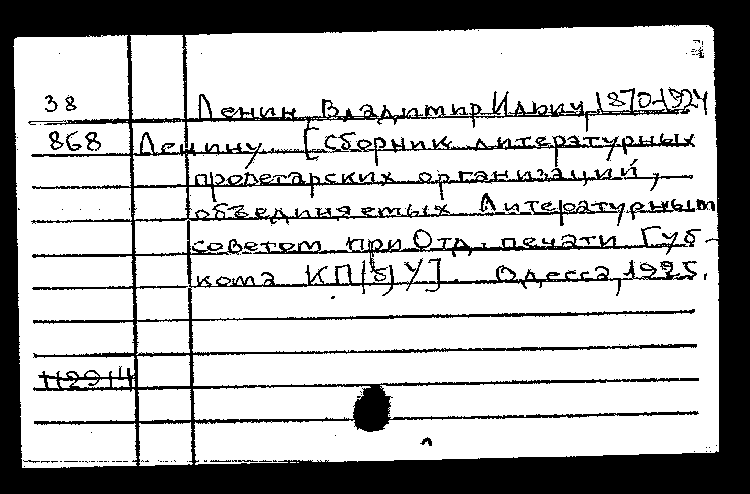 38 Ленин, Владимир Ильич, 1870-1924
868 Ленину. [Сборник литературных
пролетарских организаций,
объединяемых Литературным
советом при Отд. печати Губ-
кома КП(б)У]. Одесса, 1925.
112914